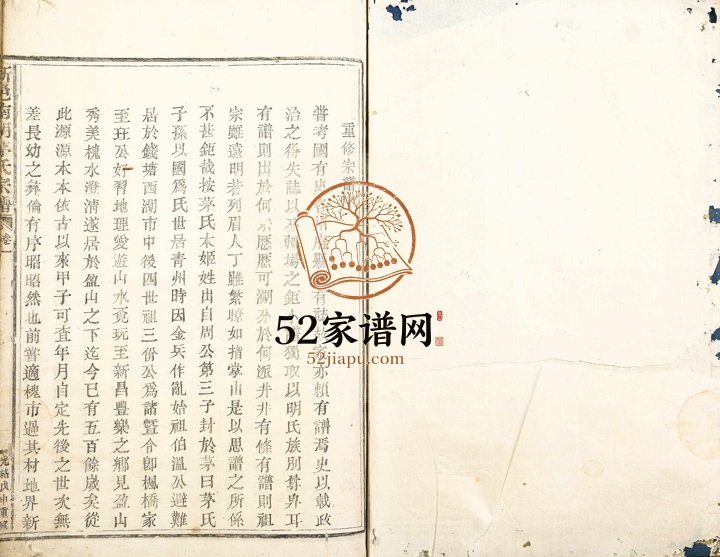 重修宗譜
嘗考國有史 有 亦頼有譜焉史以載政
治之得失誌以 場之鉅 獨取以明氏族別昏界耳
有譜則出於何宗歷歷可溯外於何派井井有條有譜則祖
宗雖遠明若列眉人丁雖繁瞭如指掌山是以思譜之所係
不甚鉅哉按茅氏本姬姓出自周公第三子封於茅曰茅氏
子孫以國爲氏世居青州時因金兵作亂始祖伯溫公避難
居於錢塘西湖市中後四世祖三份公爲諸曁令卽楓橋家
至班公好習地理愛遊山水竟玩至新昌豐樂之鄉見盈山
秀美槐水澄清遂居於盈山之下迄今已有五百餘歲矣從
此源源本本依古以來甲子可査年月自定先後之世次無
差長幼之彛倫有序昭昭然也前嘗適槐市過其村地界新
新邑南明茅氏宗譜 卷一
光緒戊申重修
52家谱网
52jiapu.com